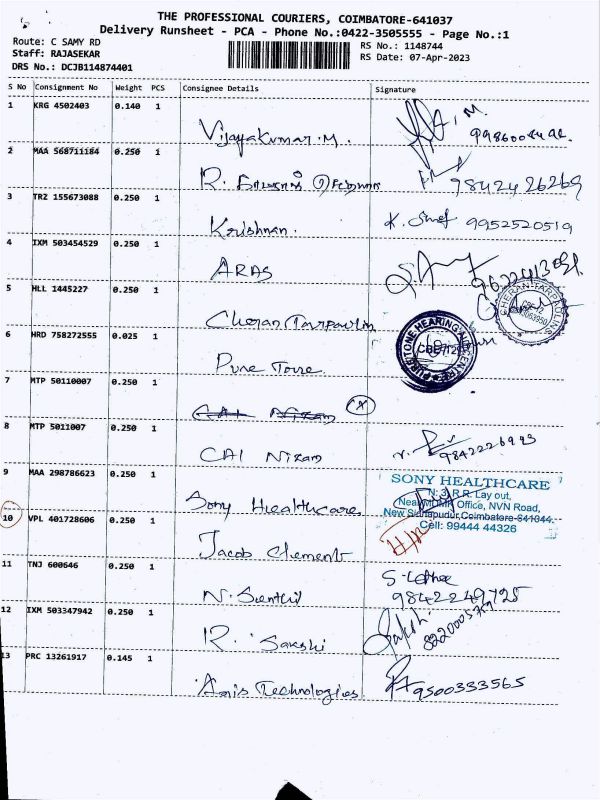 THE PROFESSIONAL COURIERS, COIMBATORE-641037
Delivery Runsheet - PCA - Phone No.:0422-3505555 - Page No.:1
Route: C SAMY RD
Staff: RAJASEKAR
DRS No.: DCJB114874401
RS No.: 1148744
RS Date: 07-Apr-2023
S No Consignment No Weight PCS Consignee Details Signature
1 KRG 4502403 0.140 1
Vijayakumar.M.
2 MAA 568711184 0.250 1
R. 9842426269
3 TRZ 155673088 0.250 1
Krishnan. K. 9952520519
4 IXM 503454529 0.250 1
ARAS
5 HLL 1445227 0.250 1
Cheran Tarpaulin
CHERAN TARPAULINS
6 HRD 758272555 0.025 1
Pure Tone
PURE TONE HEARING AID CENTRE
7 MTP 50110007 0.250 1
8 MTP 5011007 0.250 1
CAI Nizam 9842226993
9 MAA 298786623 0.250 1
Sony Healthcare
SONY HEALTHCARE
N: 3, R.R. Lay out,
Near Office, NVN Road,
New Sidhapudur, Coimbatore-641044.
Cell: 99444 44326
10 VPL 401728606 0.250 1
Jacob Clement
11 TNJ 600646 0.250 1
N. Senthil 9842249725
12 IXM 503347942 0.250 1
R. Sakshi
13 PRC 13261917 0.145 1
Amis Technologies 9500333565